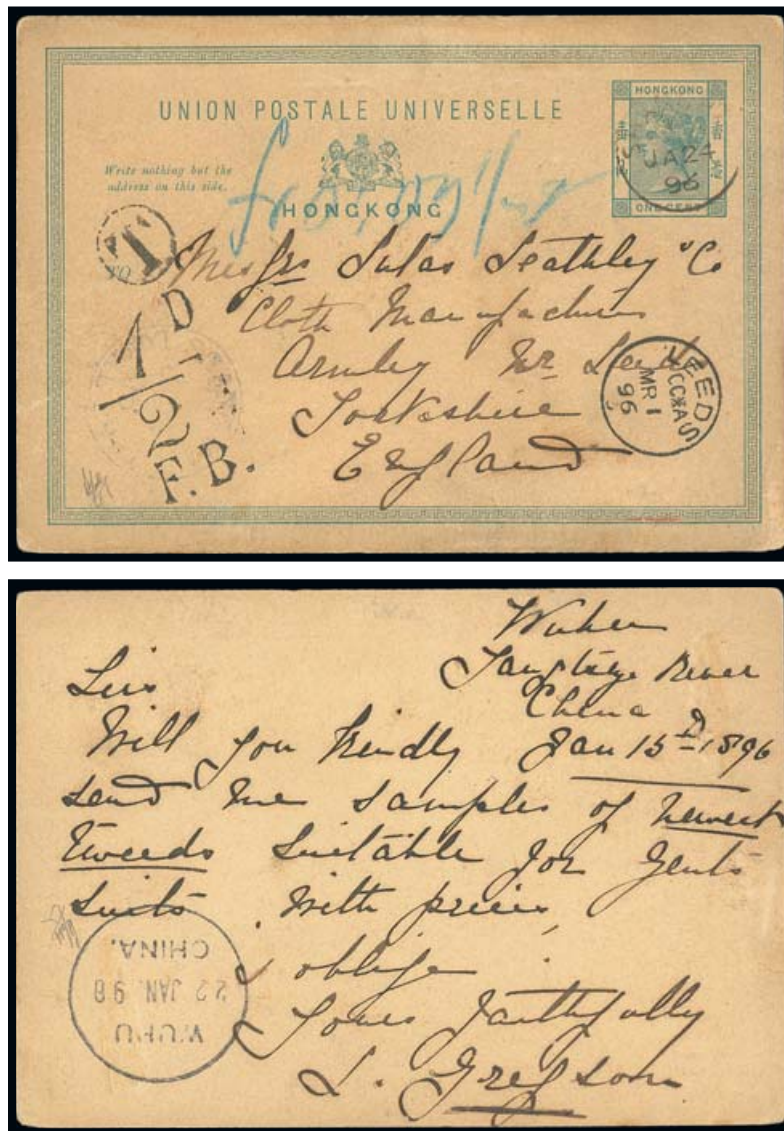 UNION POSTALE UNIVERSELLE
HONGKONG
壹
ONE CENT
JA 24
96
Write nothing but the
address on this side.
HONGKONG
T
TO
Messrs Leathley & Co
Cloth Manufacturers
Armley Nr Leeds
Yorkshire
England
1D/2
F.B.
LEEDS
MR 1
96
Wuhu
Yangtzye River
China
Jan 15th 1896
Sirs
Will you kindly
send me samples of newest
Tweeds suitable for Gents
suits. With prices
oblige
Yours faithfully
L. Gregson
WUHU
22 JAN. 96
CHINA.